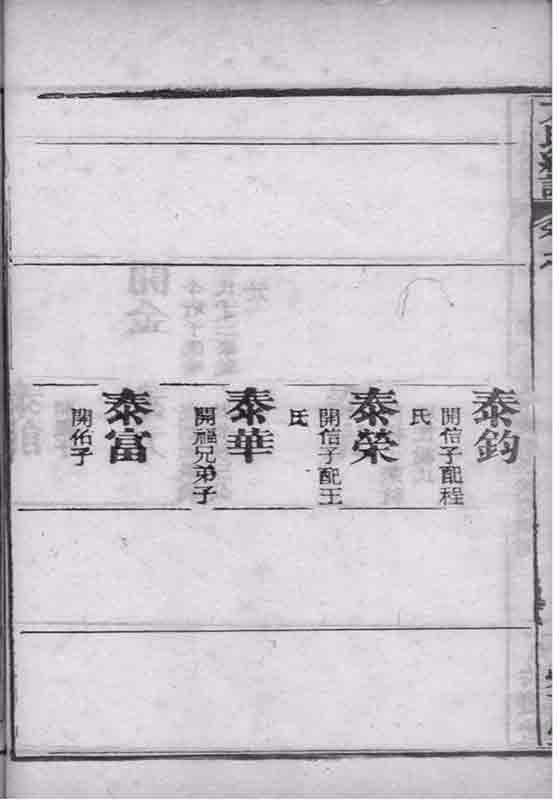 泰鈞
開信子配程
氏
泰榮
開信子配王
氏
泰華
開福兄弟子
泰富
開佑子